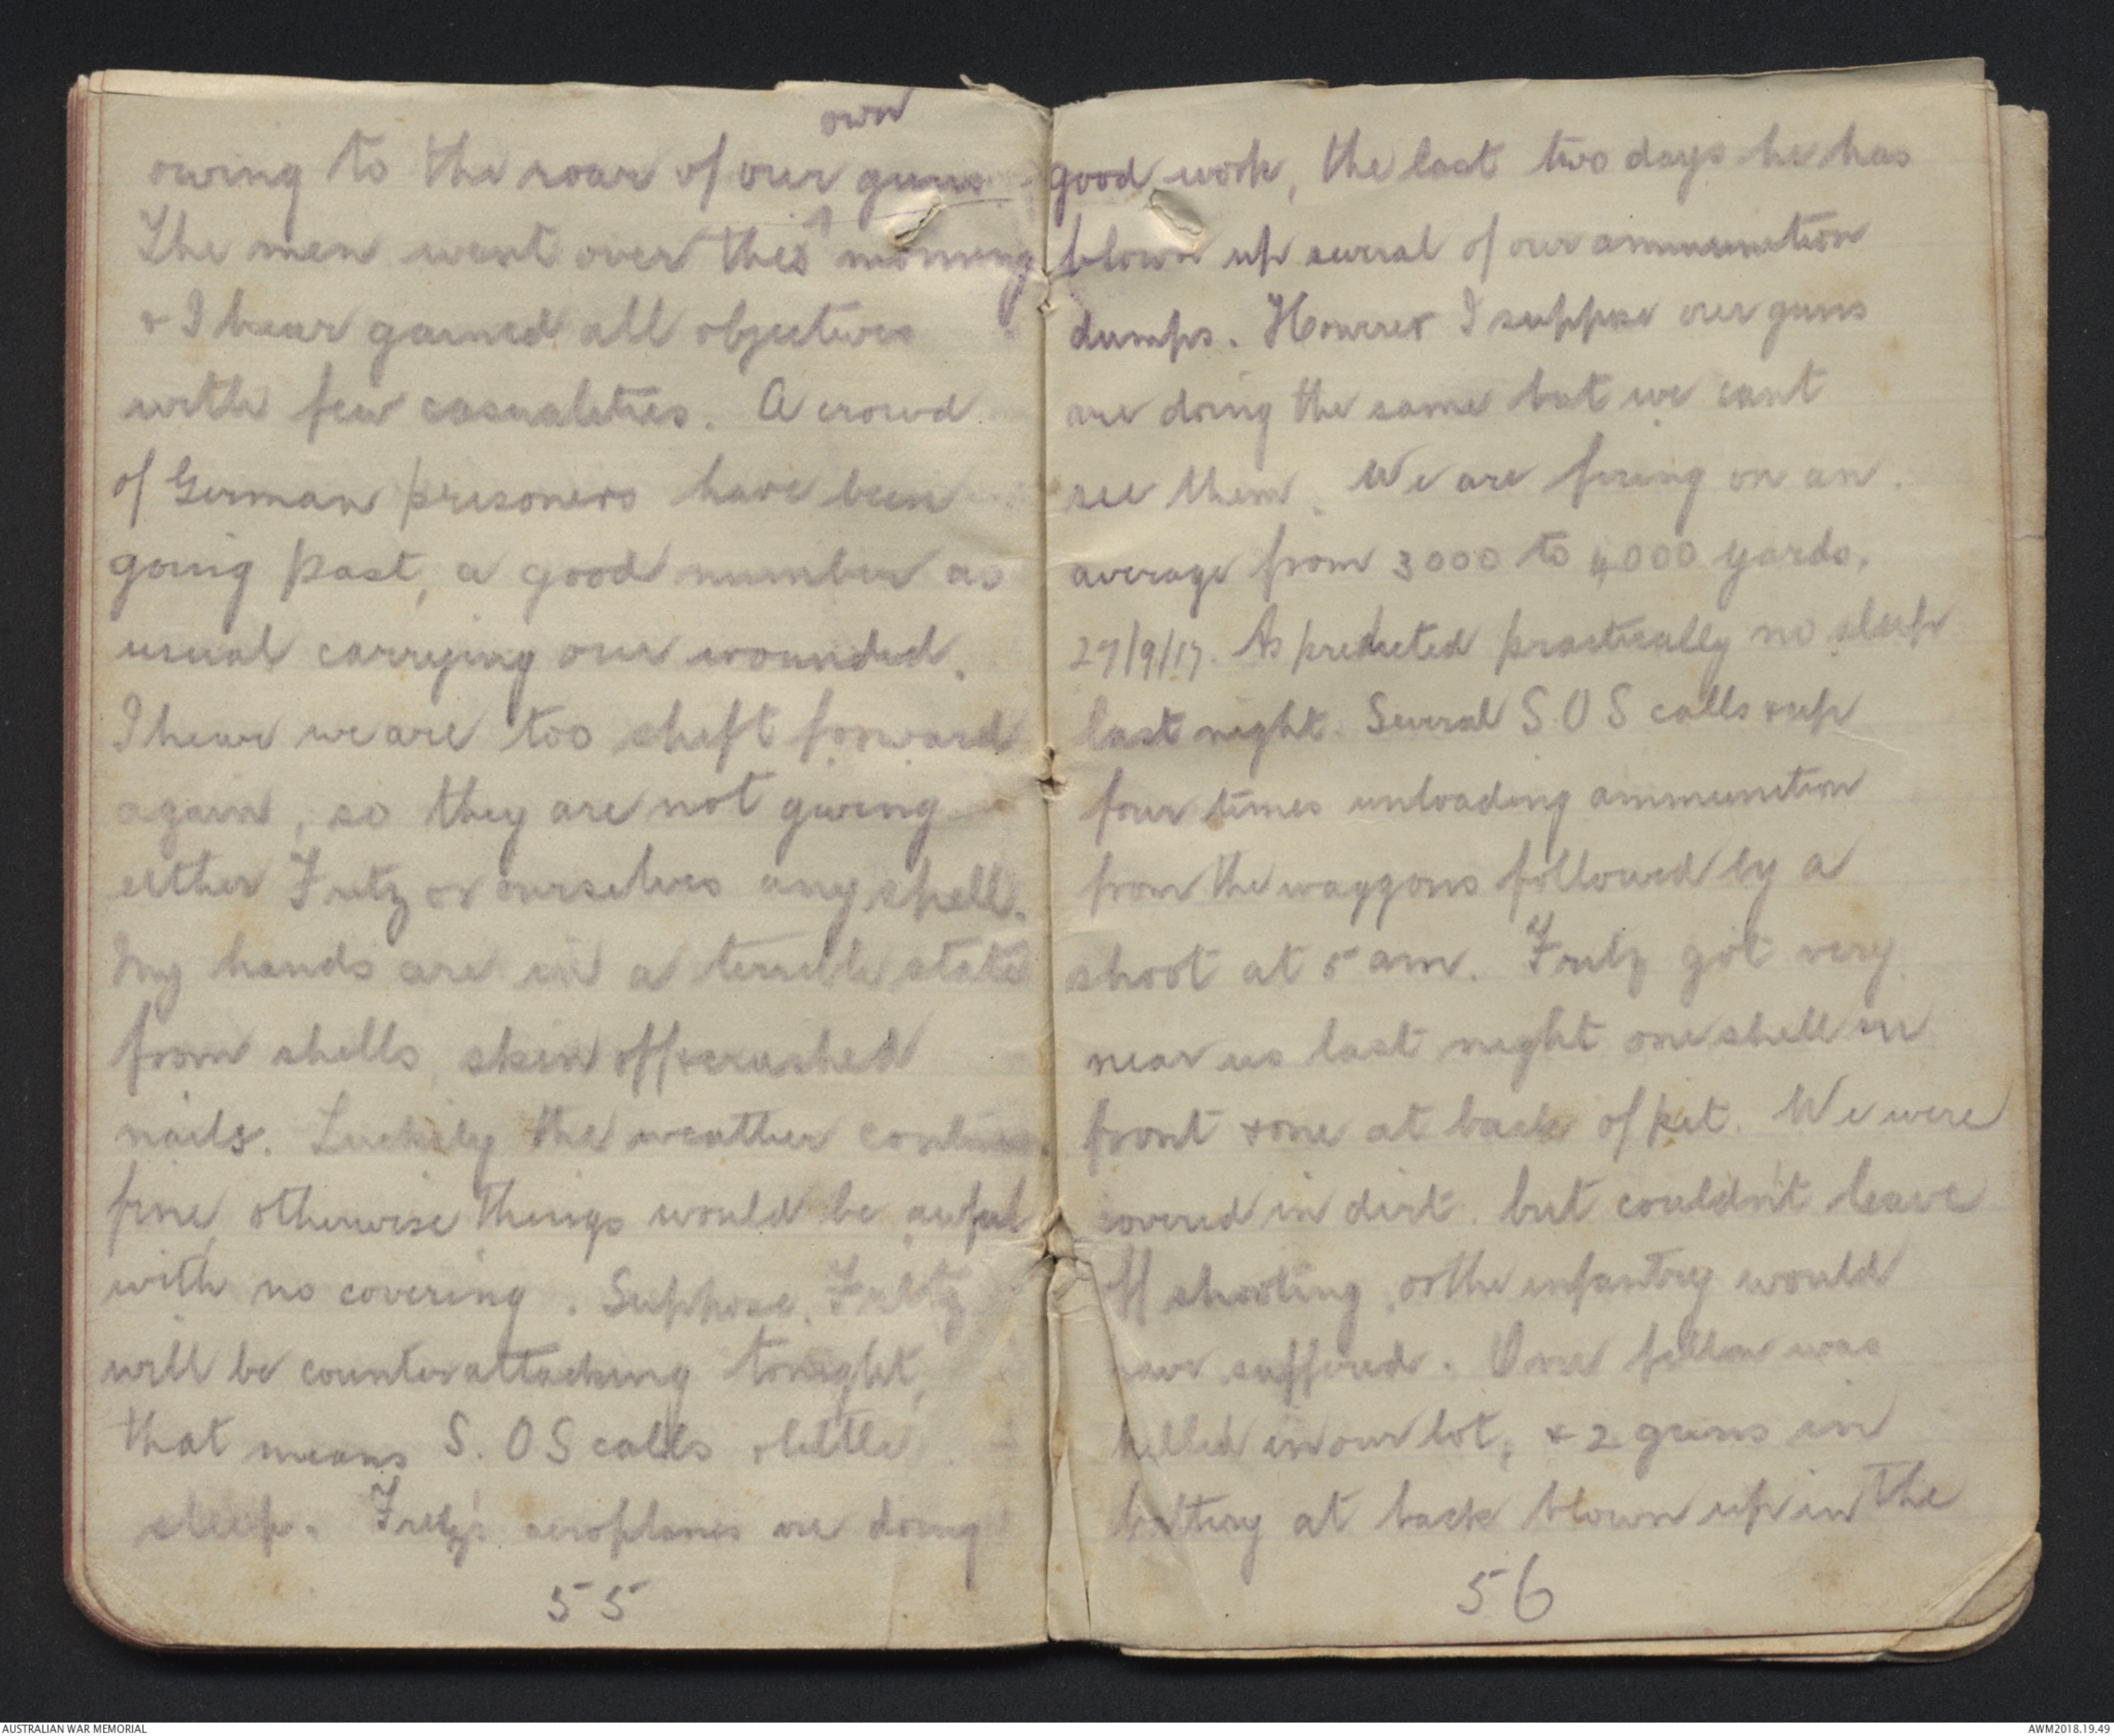 own
owing to the roar of our guns
The men went over this morning
& I hear gained all objectives
with few casualeties. A crowd
of German prisoners have been
going past, a good number as
usual carrying our wounded.
I hear we are too shift forward
again, so they are not giving
either Fritz or ourselves any spell.
My hands are in a terrible state
from shells, skin off & crushed
nails. Luckily the weather continues
fine, otherwise things would be awful
with no covering. Suppose, Fritz
will be counterattacking tonight,
that means S.OS calls & little
sleep. Fritz's aeroplanes are doing
55
good work, the last two days he has
blown up several of our ammunition
dumps. However I suppose our guns
are doing the same but we cant
see them. We are firing on an
average from 3000 to 4000 yards.
27/9/17. As predicted practically no sleep
last night. Several S.O S calls & up
four times unloading ammunition
from the waggons followed by a
shoot at 5 am. Fritz got very
near us last night one shell in
front & one at back of pit. We were
covered in dirt. but couldn't leave
off shooting, or the infantry would
have suffered. One fellow was
killed in our lot, & 2 guns in
battery at back blown up in the
56
AUSTRALIAN WAR MEMORIAL
AWM2018.19.49